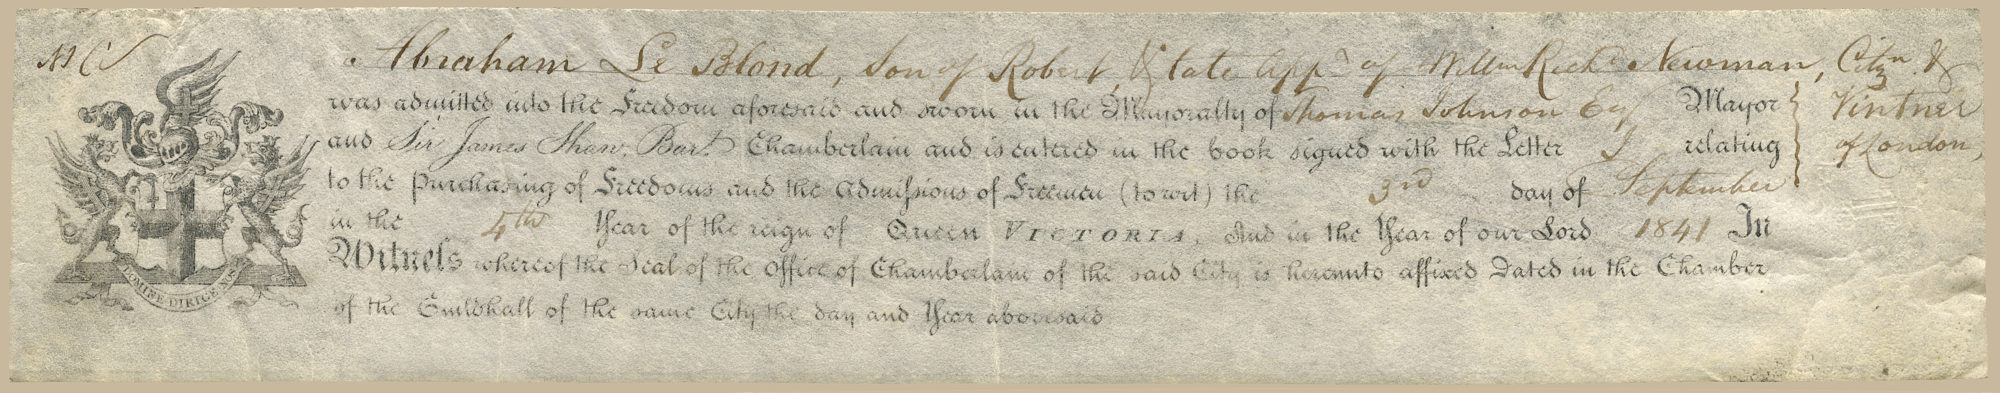 Abraham Le Blond, Son of Robert, & late Appᵉ of Willm Richᵈ Newman, Citzn &
was admitted into the Freedom aforesaid and sworn in the Mayoralty of Thomas Johnson Esq Mayor } Vintner
and Sir James Shaw, Bart. Chamberlain and is entered in the book signed with the Letter J relating } of London,
to the Purchasing of Freedoms and the Admissions of Freemen (to wit) the 3rd day of September
in the 4th Year of the reign of Queen VICTORIA, And in the Year of our Lord 1841 In
Witness whereof the Seal of the Office of Chamberlain of the said City is hereunto affixed Dated in the Chamber
of the Guildhall of the same City the day and Year abovesaid
DOMINE DIRIGE NOS